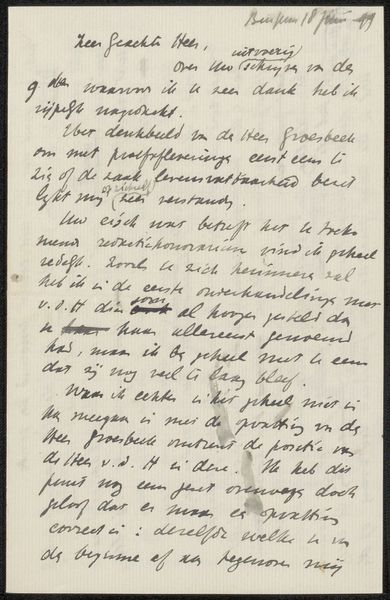 Bussum 18 Juni 99
Zeer Geachte Heer,
uitvoerig
Over Uw schrijven van de
9 der waarvoor ik u zeer dank heb ik
rijpelijk nagedacht.
Het denkbeeld van de Heer Groesbeek
om met proefafleveringen eerst eens te
zien of de zaak levensvatbaarheid bezit
lijkt mij op zichzelf zeer verstandig.
Uw eisch wat betreft het te
redactiehonorarium vind ik geheel
redelijk. Zooals u zich herinneren zal
heb ik in de eerste onderhandelingen met
v. d. H die som al hooger gesteld dan
u haar allereerst genoemd
had, maar ik ben geheel met u eens
dat zij nog veel te laag bleef.
Waar ik echter in het geheel niet in
kan meegaan is met de opvatting van de
Heer Groesbeek omtrent de positie van
de Heer v. d. H in deze. Ik heb dit
punt nog eens goed overwogen doch
geloof dat er maar één opvatting
correct is: dezelfde welke u van
den beginne af aan tegenover mij